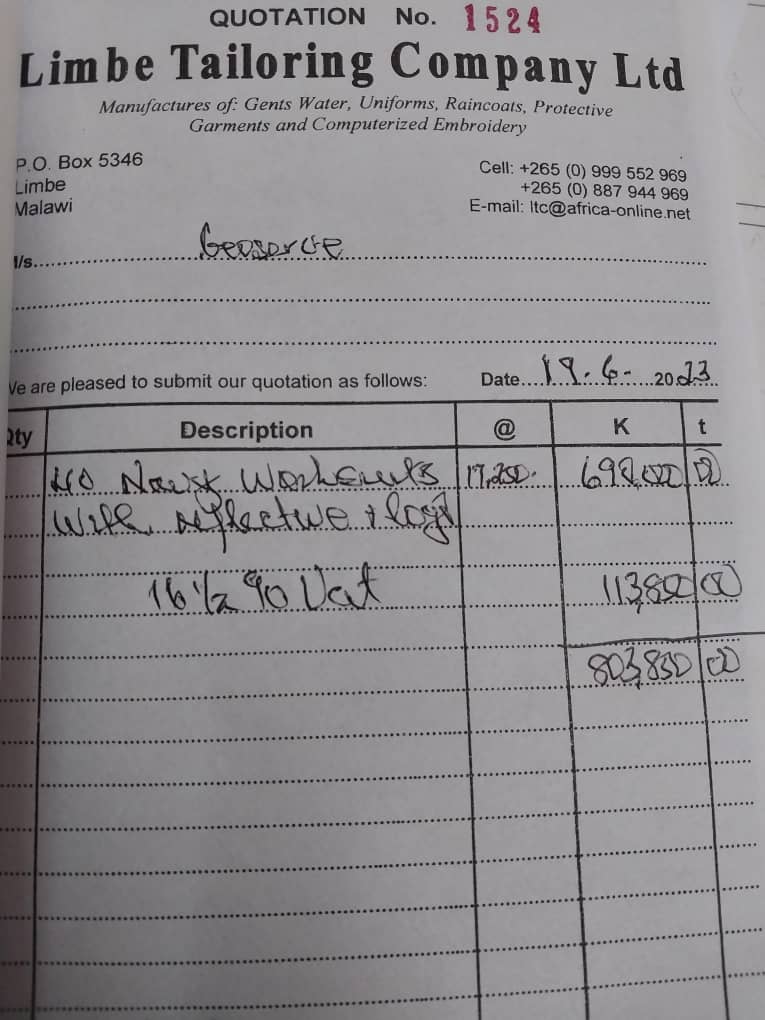 QUOTATION No. 1524
Limbe Tailoring Company Ltd
Manufactures of: Gents Water, Uniforms, Raincoats, Protective
Garments and Computerized Embroidery
P.O. Box 5346
Limbe
Malawi
Cell: +265 (0) 999 552 969
+265 (0) 887 944 969
E-mail: ltc@africa-online.net
/s.
We are pleased to submit our quotation as follows: Date 19.6- 2023
Qty Description @ K t
40 Navy Worksuits 17,250. 00
With reflective & logo
16 1/2 % Vat 113,850 00
803,850 00